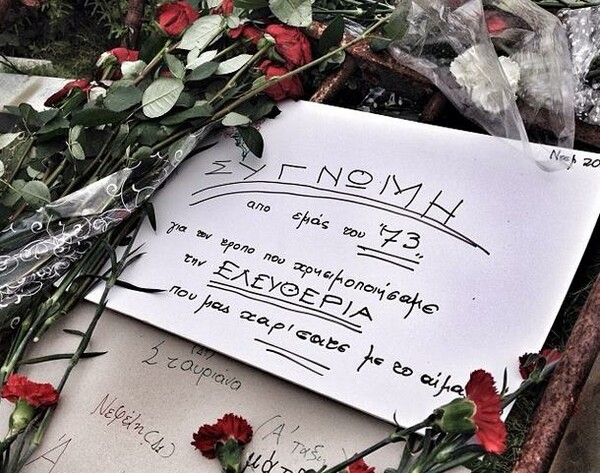 Νοεμ 20
ΣΥΓΝΩΜΗ
απο εμάς του '73
για τον τροπο που χρησιμοποιήσαμε
την ΕΛΕΥΘΕΡΙΑ
που μας χαρίσατε με το αίμα
(Δ')
Σταυριάνα
Νεφέλη (Δ)
(Α' τάξη)
Ά